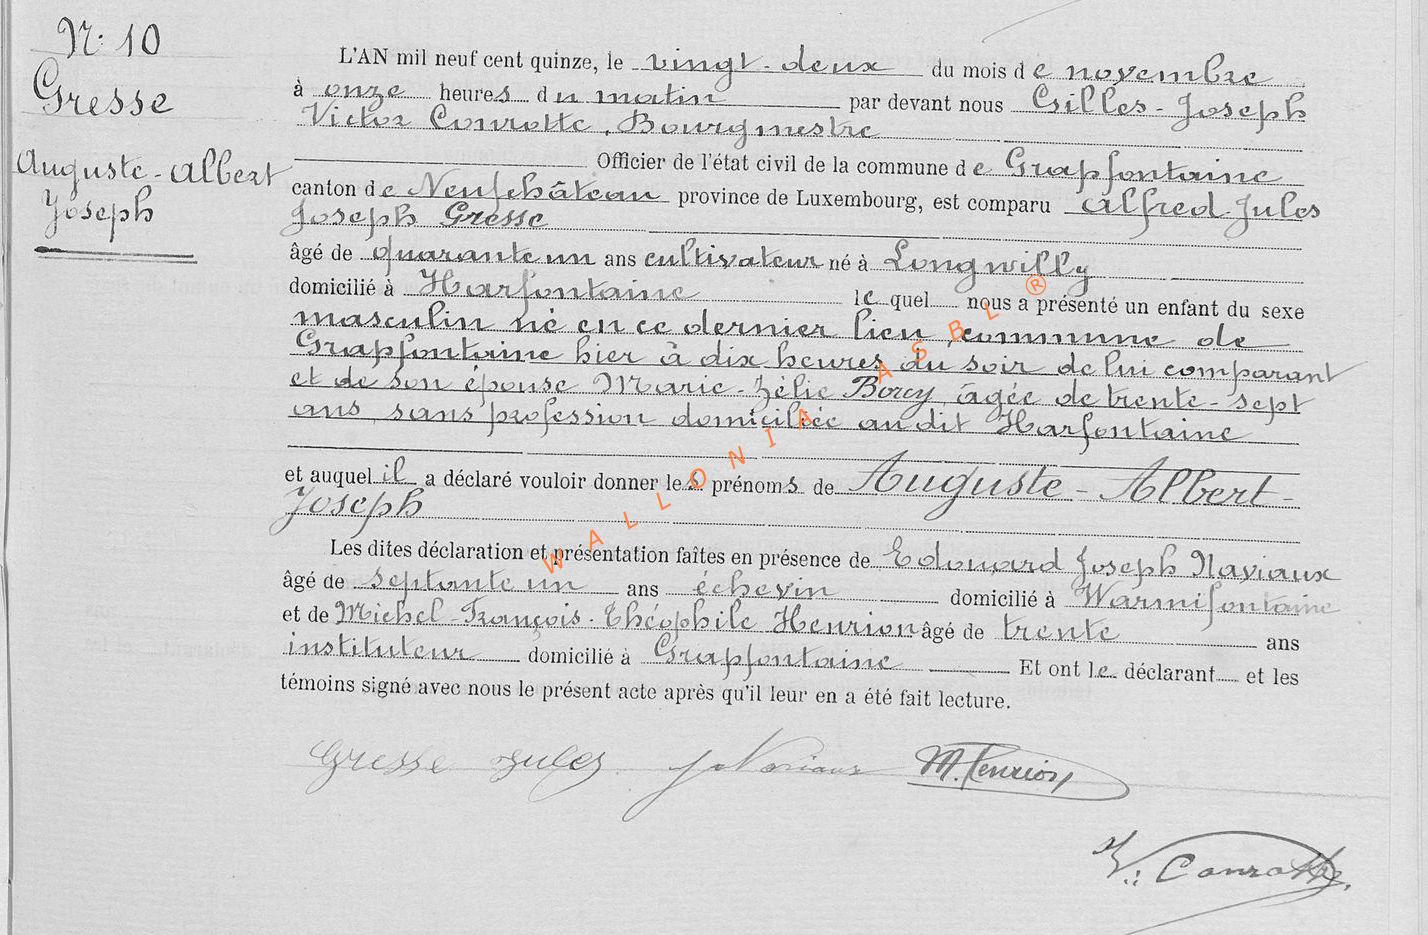 N: 10
Gresse
Auguste-Albert
Joseph
L'AN mil neuf cent quinze, le vingt-deux du mois de novembre
à onze heures du matin par devant nous Gilles-Joseph
Victor Conrotte, Bourgmestre
Officier de l'état civil de la commune de Grapfontaine
canton de Neufchâteau province de Luxembourg, est comparu Alfred-Jules
Joseph Gresse
âgé de quarante un ans cultivateur né à Longwilly
domicilié à Harfontaine lequel nous a présenté un enfant du sexe
masculin né en ce dernier lieu, commune de
Grapfontaine hier à dix heures du soir de lui comparant
et de son épouse Marie-Zélie Borcy, âgée de trente-sept
ans, sans profession domiciliée au dit Harfontaine
et auquel il a déclaré vouloir donner les prénoms de Auguste-Albert-
Joseph
Les dites déclaration et présentation faîtes en présence de Edouard Joseph Naviaux
âgé de septante un ans échevin domicilié à Warmifontaine
et de Michel-François-Théophile Henrion âgé de trente ans
instituteur domicilié à Grapfontaine Et ont le déclarant et les
témoins signé avec nous le présent acte après qu'il leur en a été fait lecture.
Gresse Jules J Naviaux M. Henrion
V. Conrotte.
WALLONIA ASBL ®